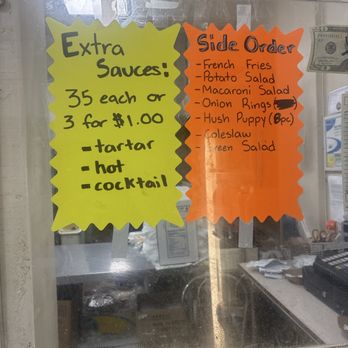 Extra
Sauces:
35 each or
3 for $1.00
- tartar
- hot
- cocktail
Side Order
- French Fries
- Potato Salad
- Macaroni Salad
- Onion Rings
- Hush Puppy (8pc)
- Coleslaw
- Green Salad